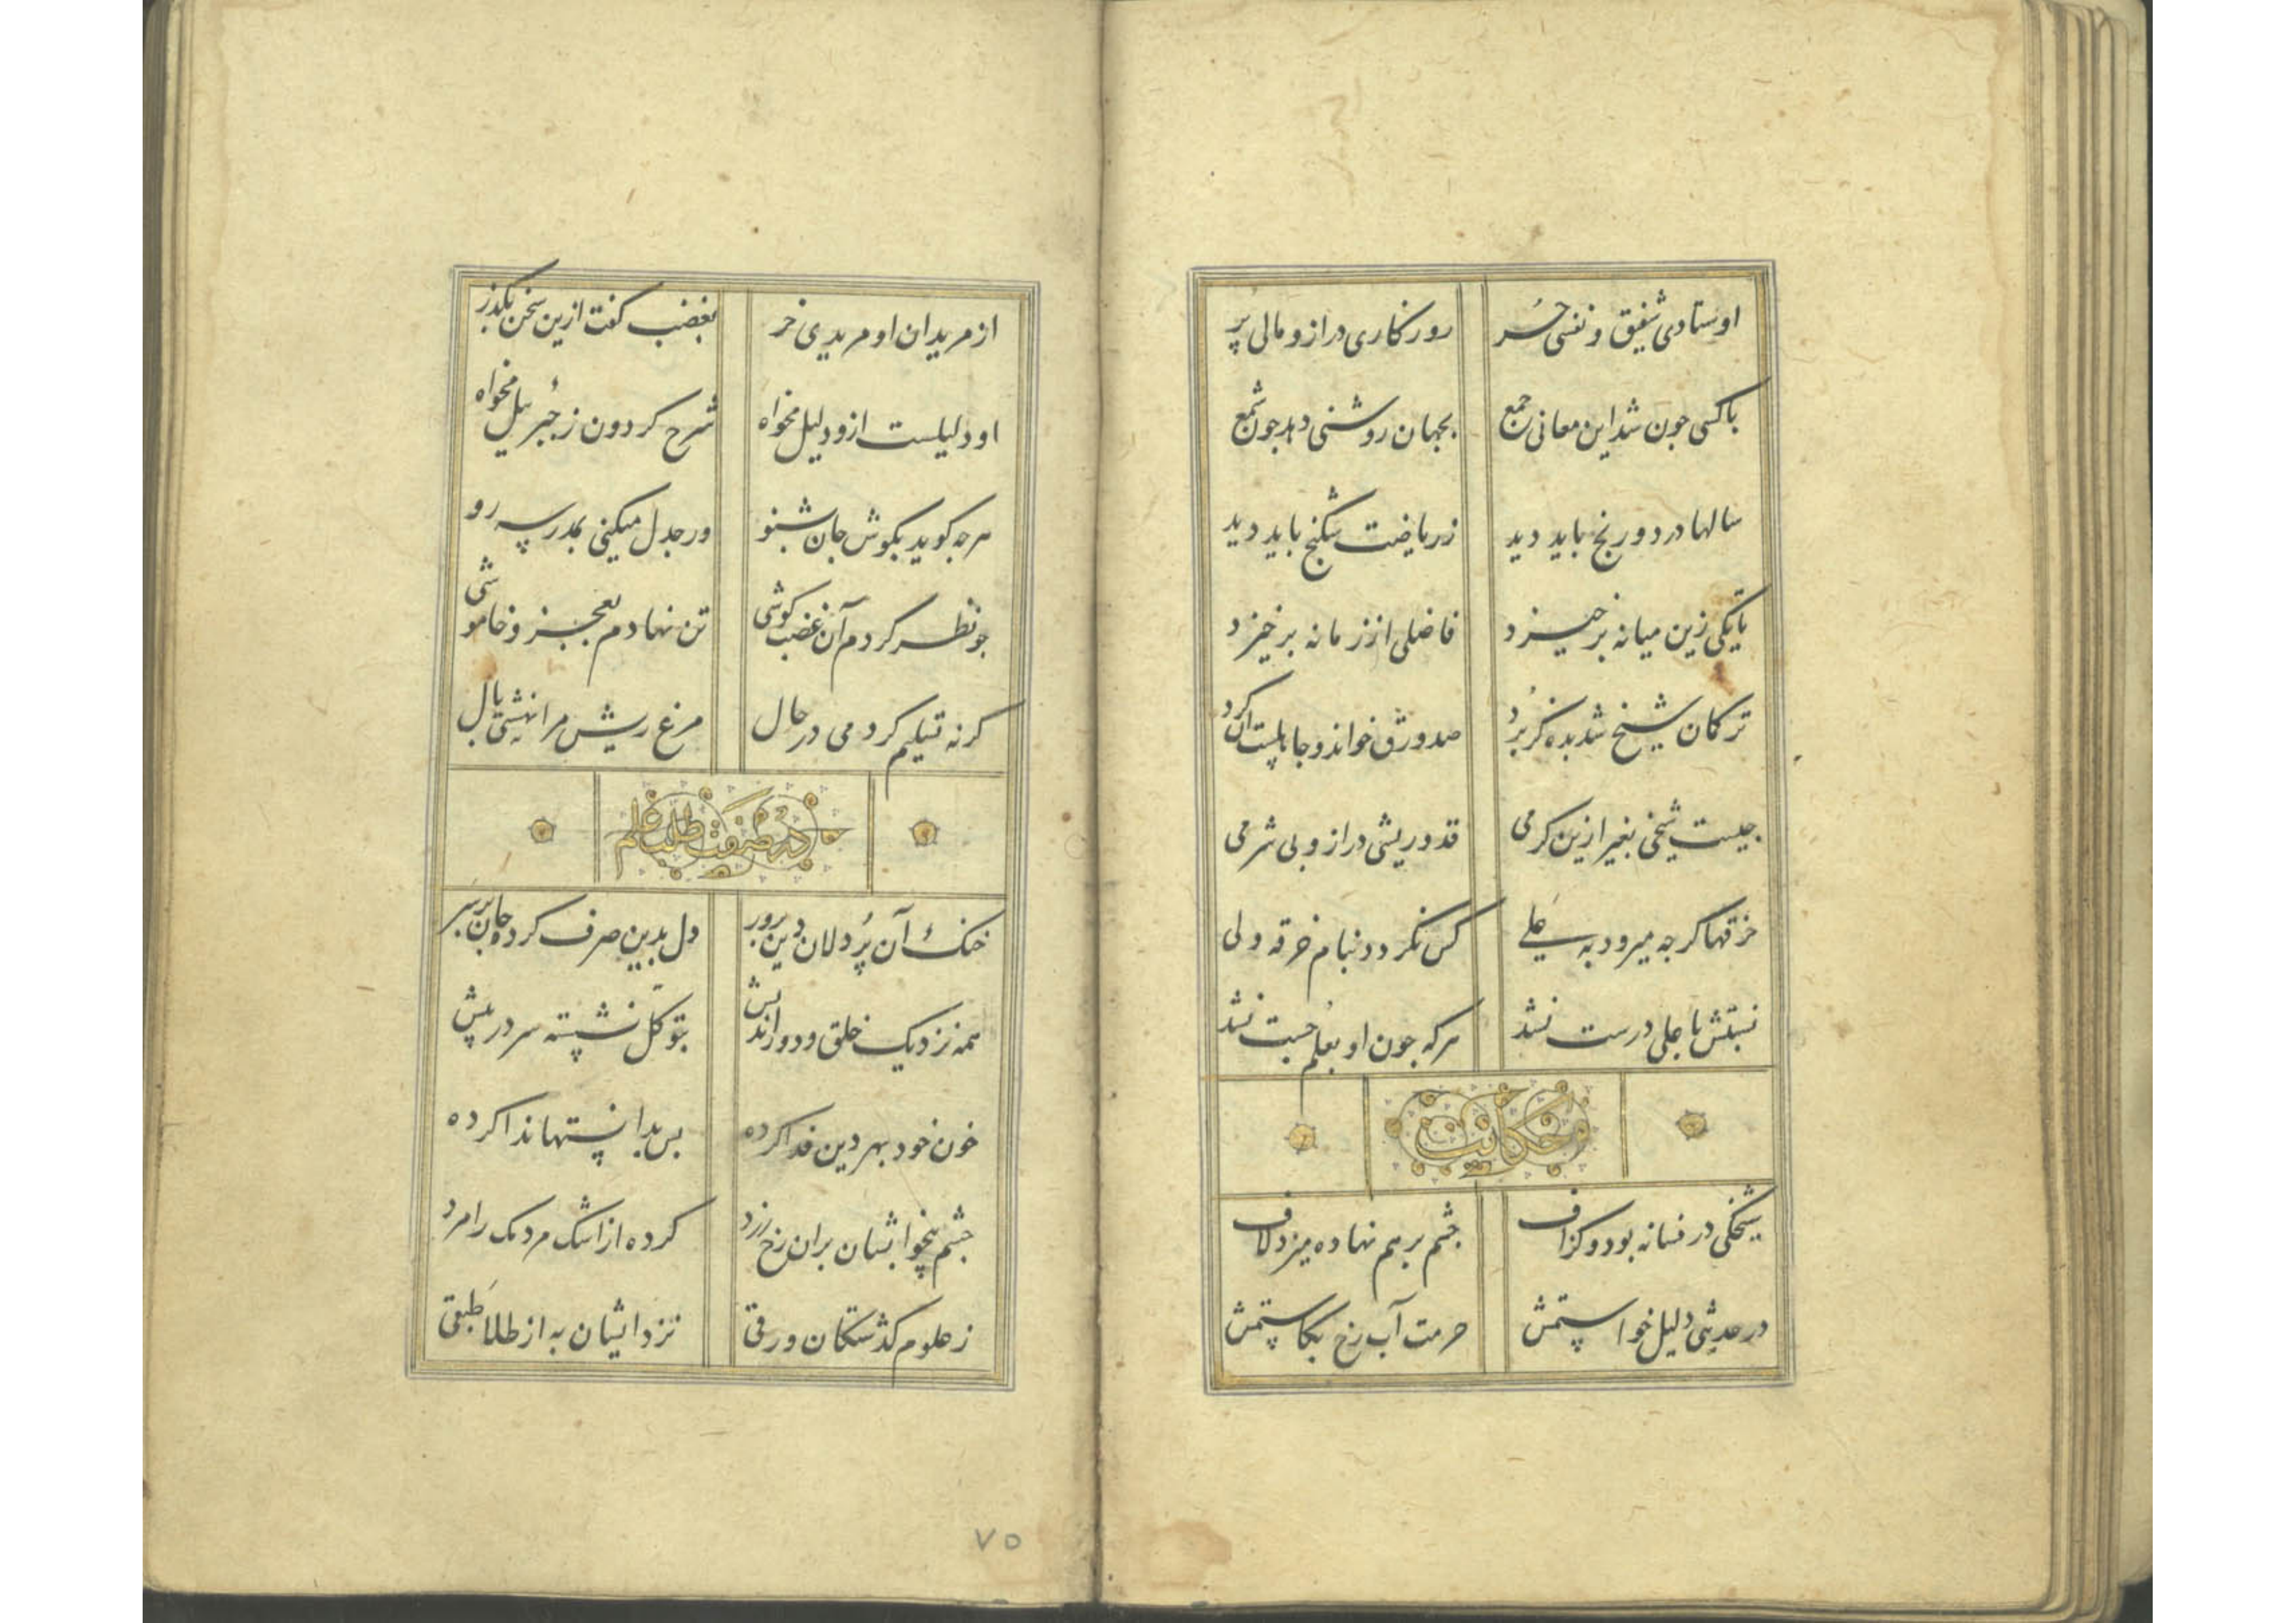 اوستادی شفیق و نفسی حُر روزکاری دراز و مالی پُر
باکسی جون شد این معانی جمع بجهان روشنی دهد جون شمع
سالها درد و رنج باید دید زریاضت شکنج باید دید
تا یکی زین میانه برخیزد فاضلی از زمانه برخیزد
ترکمان شیخ شد بده کز بُرد صد ورق خواند و جابلست آن کرد
جیست شیخی بغیر ازین کرمی قد و ریشی دراز و بی شرمی
خرقها کرجه میرود به علی کس نکردد بنام خرقه ولی
نسبتش با علی درست نشد هرکه جون او بعلم جست نشد
حکایت
شیخکی در فسانه بود و کزاف جشم برهم نهاده میزد لاف
در حدیثی دلیل خواستمش حرمت آب رخ بکاستمش
از مریدان او مریدی خر بغضب کفت ازین سخن بکذر
او دلیلست ازو دلیل مخواه شرح کردون ز جبرئیل مخواه
هرجه کوید بکوش جان بشنو ور جدل میکنی بمدرسه رو
جو نظر کردم آن غضب کوشی تن نهادم بعجز و خاموشی
کرنه تسلیم کردمی در حال مرغ ریش مرا نهشتی بال
در صفت طلب علم
خنک آن پُردلان دین پرور دل بدین صرف کرده جان بر سر
همه نزدیک خلق و دور اندیش بتوکل نشسته سر در پیش
خون خود بهر دین فدا کرده بس بدانستها ندا کرده
جشم بیخوابشان بران رخ زرد کرده از اشک مردمک را مرد
ز علوم کذشتکان ورقی نزد ایشان به از طلا طبقی
۷۵